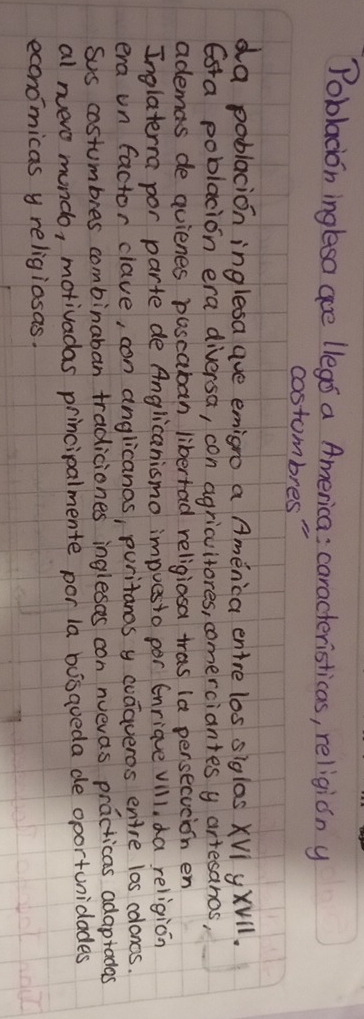 Población inglesa que llegó a America: características, religión y
costumbres"
La población inglesa que emigro a América entre los siglos XVI y XVII.
Esta población era diversa, con agricultores, comerciantes y artesanos,
ademas de quienes buscaban libertad religiosa tras la persecución en
Inglaterra por parte de Anglicanismo impuesto por Enrique VIII. La religión
era un factor clave, con anglicanos, puritanos y cuáqueros entre los colonos.
Sus costumbres combinaban tradiciones inglesas con nuevas prácticas adaptadas
al nuevo mundo, motivadas principalmente por la búsqueda de oportunidades
económicas y religiosas.